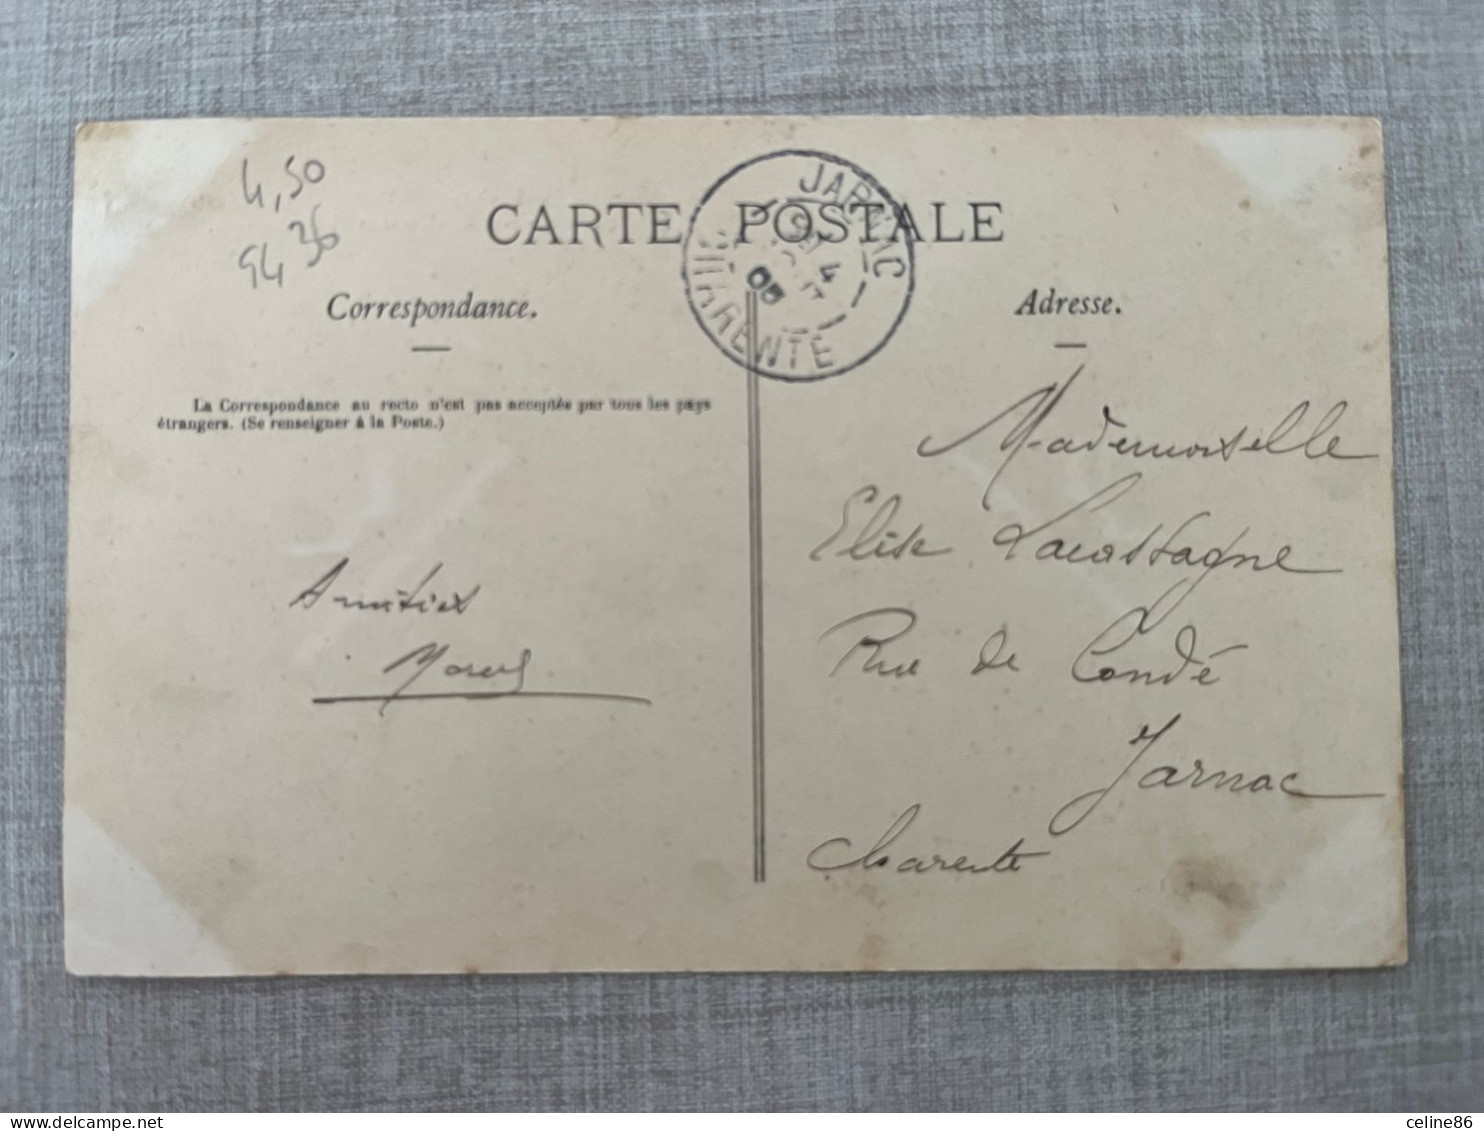 4,50
94 36
CARTE POSTALE
JARNAC
4
05
CHARENTE
Correspondance.
Adresse.
La Correspondance au recto n'est pas acceptée par tous les pays
étrangers. (Se renseigner à la Poste.)
Mademoiselle
Elise Lacastagne
Rue de Condé
Jarnac
Charente
Amitiés
Marcel
delcampe.net
celine86